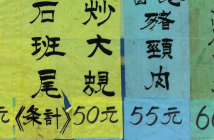 石班尾
《条計》
炒大蜆
50元
豬頸肉
55元